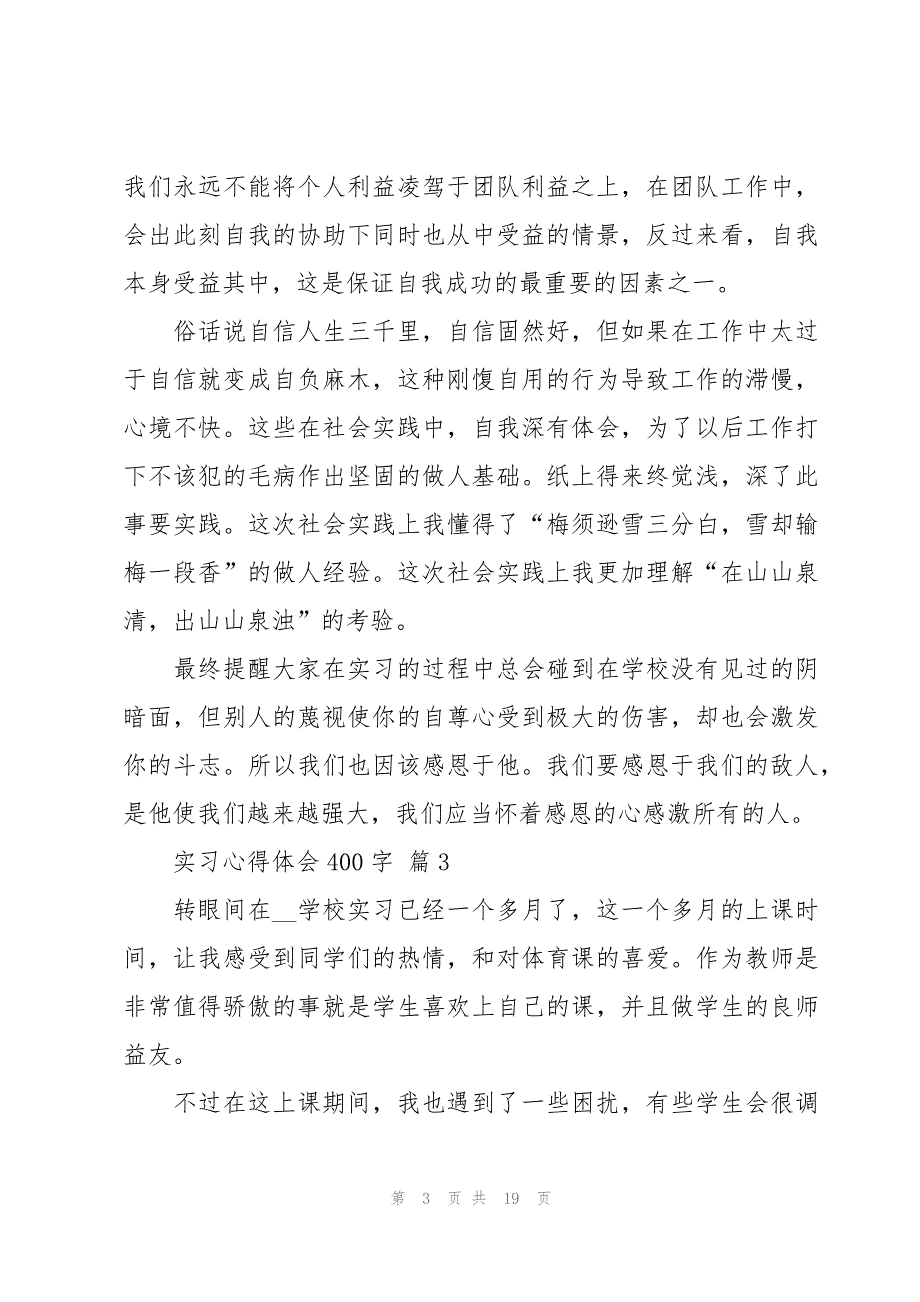 我们永远不能将个人利益凌驾于团队利益之上，在团队工作中，
会出此刻自我的协助下同时也从中受益的情景，反过来看，自我
本身受益其中，这是保证自我成功的最重要的因素之一。
俗话说自信人生三千里，自信固然好，但如果在工作中太过
于自信就变成自负麻木，这种刚愎自用的行为导致工作的滞慢，
心境不快。这些在社会实践中，自我深有体会，为了以后工作打
下不该犯的毛病作出坚固的做人基础。纸上得来终觉浅，深了此
事要实践。这次社会实践上我懂得了“梅须逊雪三分白，雪却输
梅一段香”的做人经验。这次社会实践上我更加理解“在山山泉
清，出山山泉浊”的考验。
最终提醒大家在实习的过程中总会碰到在学校没有见过的阴
暗面，但别人的蔑视使你的自尊心受到极大的伤害，却也会激发
你的斗志。所以我们也因该感恩于他。我们要感恩于我们的敌人，
是他使我们越来越强大，我们应当怀着感恩的心感激所有的人。
实习心得体会400字 篇3
转眼间在__学校实习已经一个多月了，这一个多月的上课时
间，让我感受到同学们的热情，和对体育课的喜爱。作为教师是
非常值得骄傲的事就是学生喜欢上自己的课，并且做学生的良师
益友。
不过在这上课期间，我也遇到了一些困扰，有些学生会很调
第 3 页 共 19 页